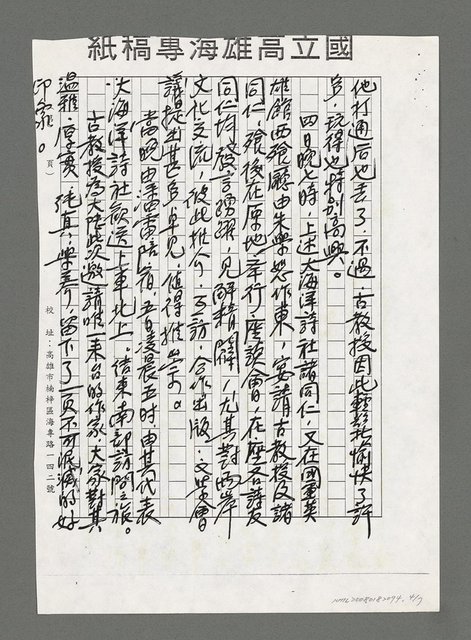 國立高雄海專稿紙
他打通后也丟了。不過，古教授因此輕鬆愉快了許
多，玩得也特別高興。
四日晚七時，上述大海洋詩社諸同仁，又在國軍英
雄館西餐廳由朱學恕作東，宴請古教授及諸
同仁，餐後在原地舉行座談會，在座各詩友
同仁均發言踴躍，見解精闢，尤其對兩岸
文化交流，彼此推介，互訪，合作出版，文學會
議提出甚多卓見，值得推崇。
當晚由潘雷陪宿，五日凌晨五時，由其代表
大海洋詩社歡送上車北上。結束南部訪問之旅。
古教授為大陸此次邀請唯一來台的作家，大家對其
溫雅，厚實，純真，樂善，留下了一頁不可泯滅的好
印象。
頁）
校址：高雄市楠梓區海專路一四二號
NML20080182074. 4/7